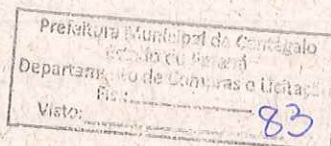 Prefeitura Municipal de Cantagalo
Estado do Paraná
Departamento de Compras e Licitação
Fls.:
83
Visto: